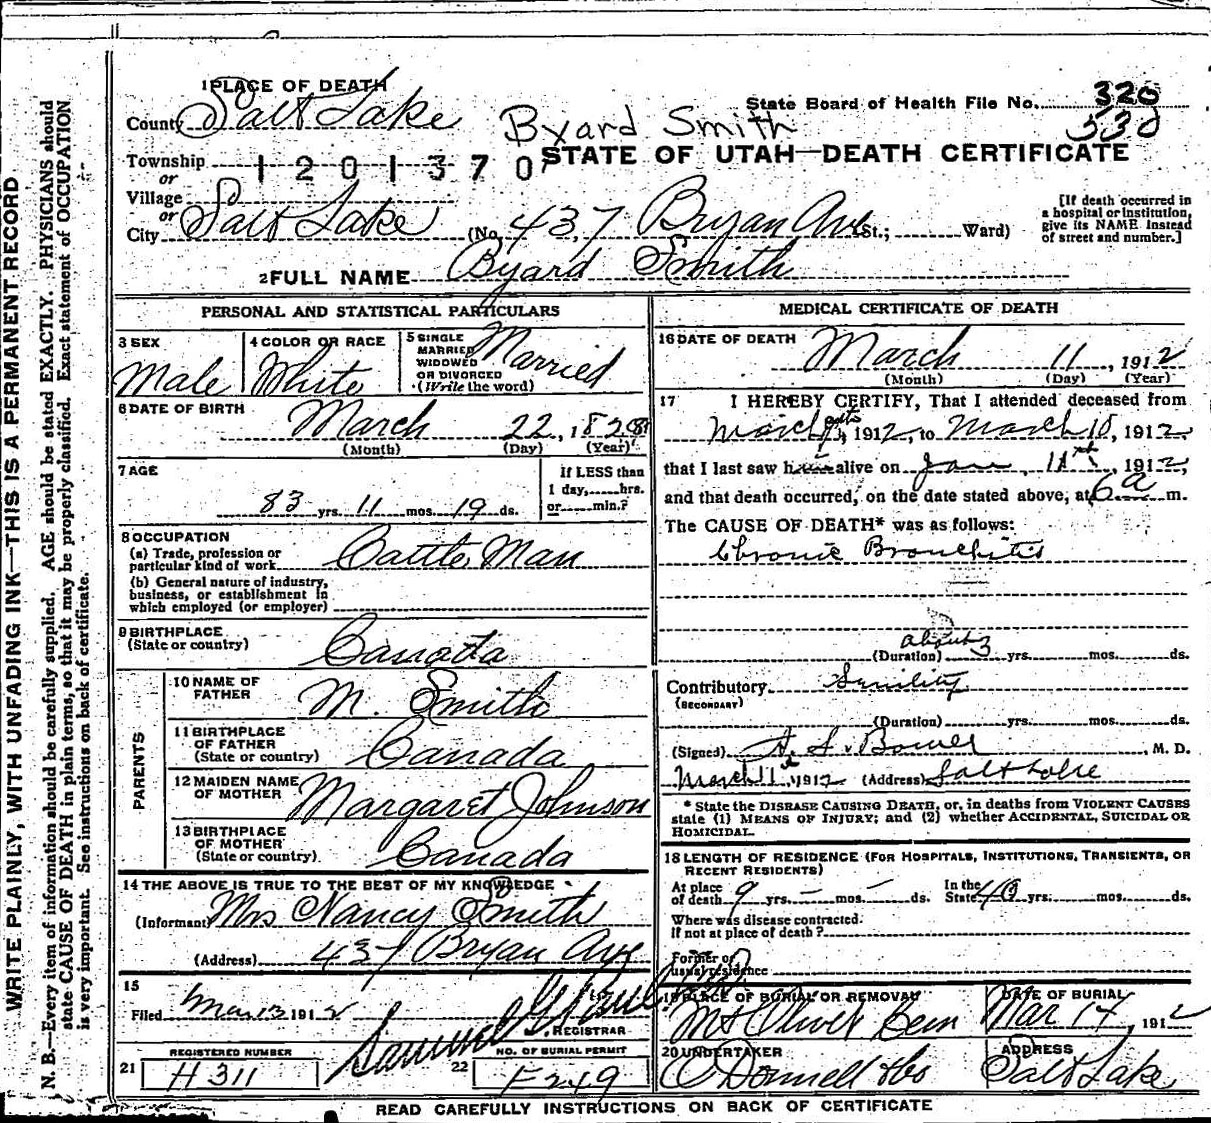 WRITE PLAINLY, WITH UNFADING INK—THIS IS A PERMANENT RECORD
N. B.—Every item of information should be carefully supplied. AGE should be stated EXACTLY. PHYSICIANS should
state CAUSE OF DEATH in plain terms, so that it may be properly classified. Exact statement of OCCUPATION
is very important. See instructions on back of certificate.
1 PLACE OF DEATH
County Salt Lake
Byard Smith
State Board of Health File No. 320
530
Township 1201370
STATE OF UTAH—DEATH CERTIFICATE
or
Village
or
City Salt Lake (No. 437 Bryan Ave St.; Ward)
[If death occurred in
a hospital or institution,
give its NAME instead
of street and number.]
2 FULL NAME Byard Smith
PERSONAL AND STATISTICAL PARTICULARS
3 SEX
Male
4 COLOR OR RACE
White
5 SINGLE
MARRIED
WIDOWED
OR DIVORCED
(Write the word)
Married
6 DATE OF BIRTH
March 22, 1828
(Month) (Day) (Year)
7 AGE
83 yrs. 11 mos. 19 ds.
If LESS than
1 day, hrs.
or min.?
8 OCCUPATION
(a) Trade, profession or
particular kind of work Cattle Man
(b) General nature of industry,
business, or establishment in
which employed (or employer)
9 BIRTHPLACE
(State or country)
Canada
PARENTS
10 NAME OF
FATHER
M. Smith
11 BIRTHPLACE
OF FATHER
(State or country)
Canada
12 MAIDEN NAME
OF MOTHER
Margaret Johnson
13 BIRTHPLACE
OF MOTHER
(State or country)
Canada
14 THE ABOVE IS TRUE TO THE BEST OF MY KNOWLEDGE
(Informant) Mrs Nancy Smith
(Address) 437 Bryan Ave
15
Filed Mar 13 1912
Samuel G.
REGISTRAR
21 REGISTERED NUMBER
H 311
22 NO. OF BURIAL PERMIT
F249
MEDICAL CERTIFICATE OF DEATH
16 DATE OF DEATH
March 11, 1912
(Month) (Day) (Year)
17 I HEREBY CERTIFY, That I attended deceased from
March 1912, to March 10, 1912,
that I last saw him alive on Jan 11th, 1912,
and that death occurred, on the date stated above, at 6 a m.
The CAUSE OF DEATH* was as follows:
Chronic Bronchitis
about
(Duration) 3 yrs. mos. ds.
Contributory Senility
(SECONDARY)
(Duration) yrs. mos. ds.
(Signed) Bower, M. D.
March 11th, 1912 (Address) Salt Lake
* State the DISEASE CAUSING DEATH, or, in deaths from VIOLENT CAUSES
state (1) MEANS OF INJURY; and (2) whether ACCIDENTAL, SUICIDAL OR
HOMICIDAL.
18 LENGTH OF RESIDENCE (FOR HOSPITALS, INSTITUTIONS, TRANSIENTS, OR
RECENT RESIDENTS)
At place
of death 9 yrs. — mos. — ds.
In the
State 40 yrs. mos. ds.
Where was disease contracted.
If not at place of death?
Former or
usual residence
19 PLACE OF BURIAL OR REMOVAL
Mt Olivet Cem
DATE OF BURIAL
Mar 14, 1912
20 UNDERTAKER
O'Donnell & Co
ADDRESS
Salt Lake
READ CAREFULLY INSTRUCTIONS ON BACK OF CERTIFICATE